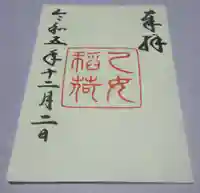 奉拝
乙女
稲荷
令和五年十二月二日